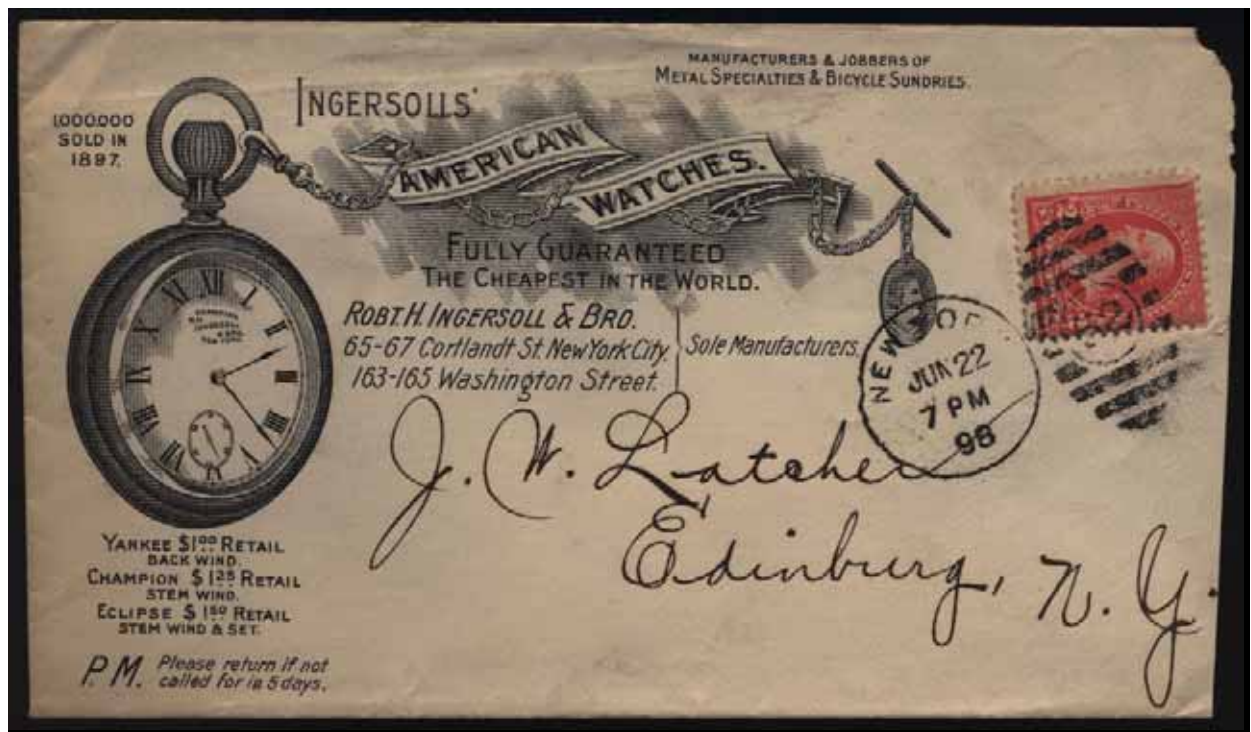 MANUFACTURERS & JOBBERS OF
METAL SPECIALTIES & BICYCLE SUNDRIES.
1,000,000
SOLD IN
1897.
INGERSOLLS'
AMERICAN
WATCHES.
FULLY GUARANTEED
THE CHEAPEST IN THE WORLD.
ROBT. H. INGERSOLL & BRO.
65-67 Cortlandt St. New York City.
163-165 Washington Street.
Sole Manufacturers.
XII I II III IIII V VI VII VIII IX X XI
NEW YORK
JUN 22
7 PM
98
J. W. Latcher
Edinburg, N. Y.
YANKEE $1.00 RETAIL
BACK WIND.
CHAMPION $1.25 RETAIL
STEM WIND.
ECLIPSE $1.50 RETAIL
STEM WIND & SET.
P.M. Please return if not
called for in 5 days.